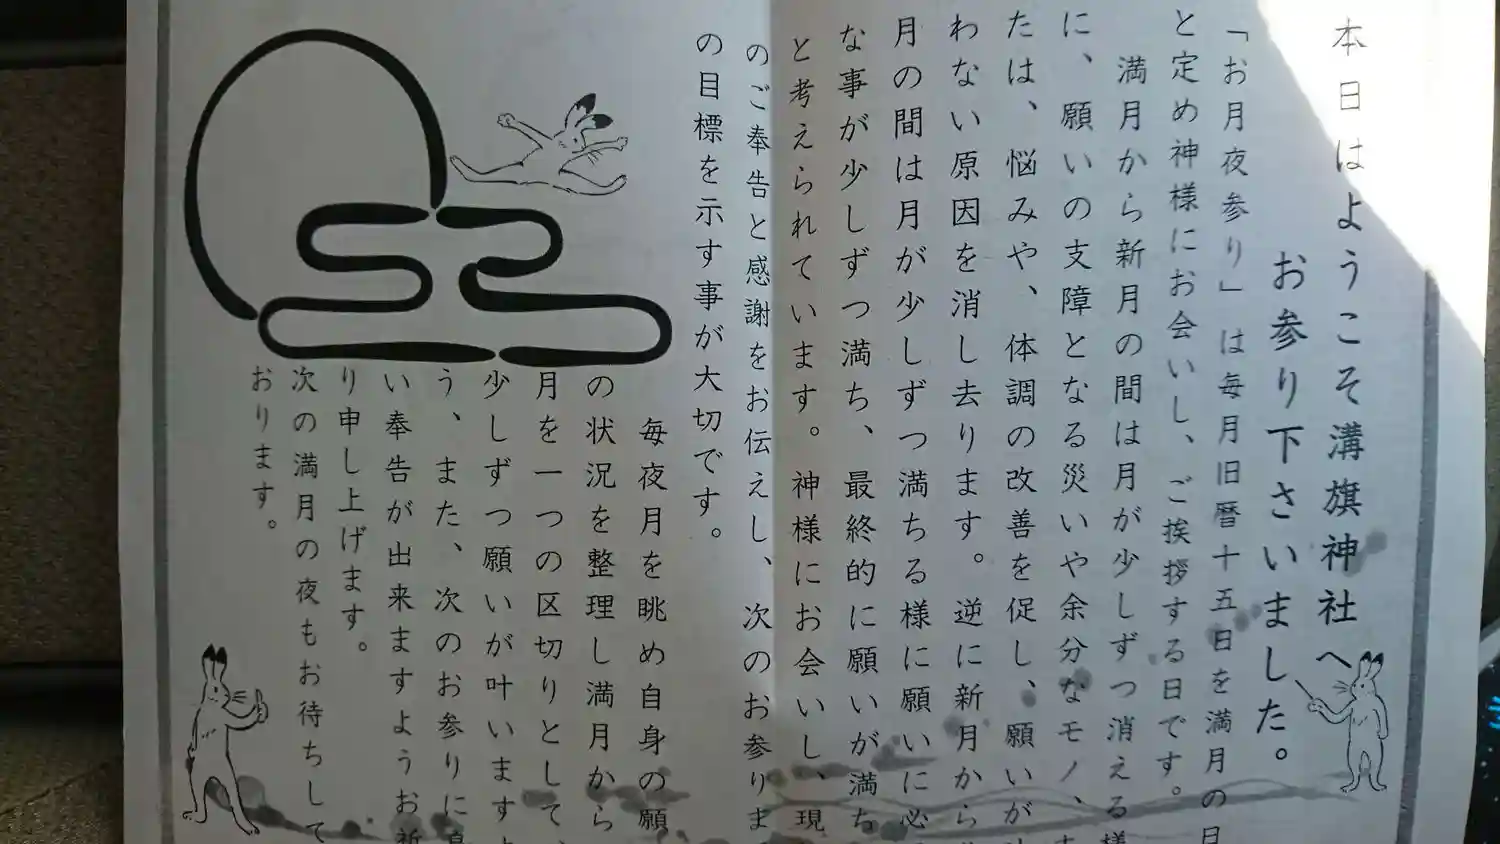 本日はようこそ溝旗神社へ
お参り下さいました。
「お月夜参り」は毎月旧暦十五日を満月の日
と定め神様にお会いし、ご挨拶する日です。
満月から新月の間は月が少しずつ消える様
に、願いの支障となる災いや余分なモノ、
たは、悩みや、体調の改善を促し、願いが
わない原因を消し去ります。逆に新月から
月の間は月が少しずつ満ちる様に願いに必
な事が少しずつ満ち、最終的に願いが満ち
と考えられています。神様にお会いし、現
のご奉告と感謝をお伝えし、次のお参りま
の目標を示す事が大切です。
毎夜月を眺め自身の願
の状況を整理し満月から
月を一つの区切りとして、
少しずつ願いが叶いますよ
う、また、次のお参りに
い奉告が出来ますようお祈
り申し上げます。
次の満月の夜もお待ちして
おります。